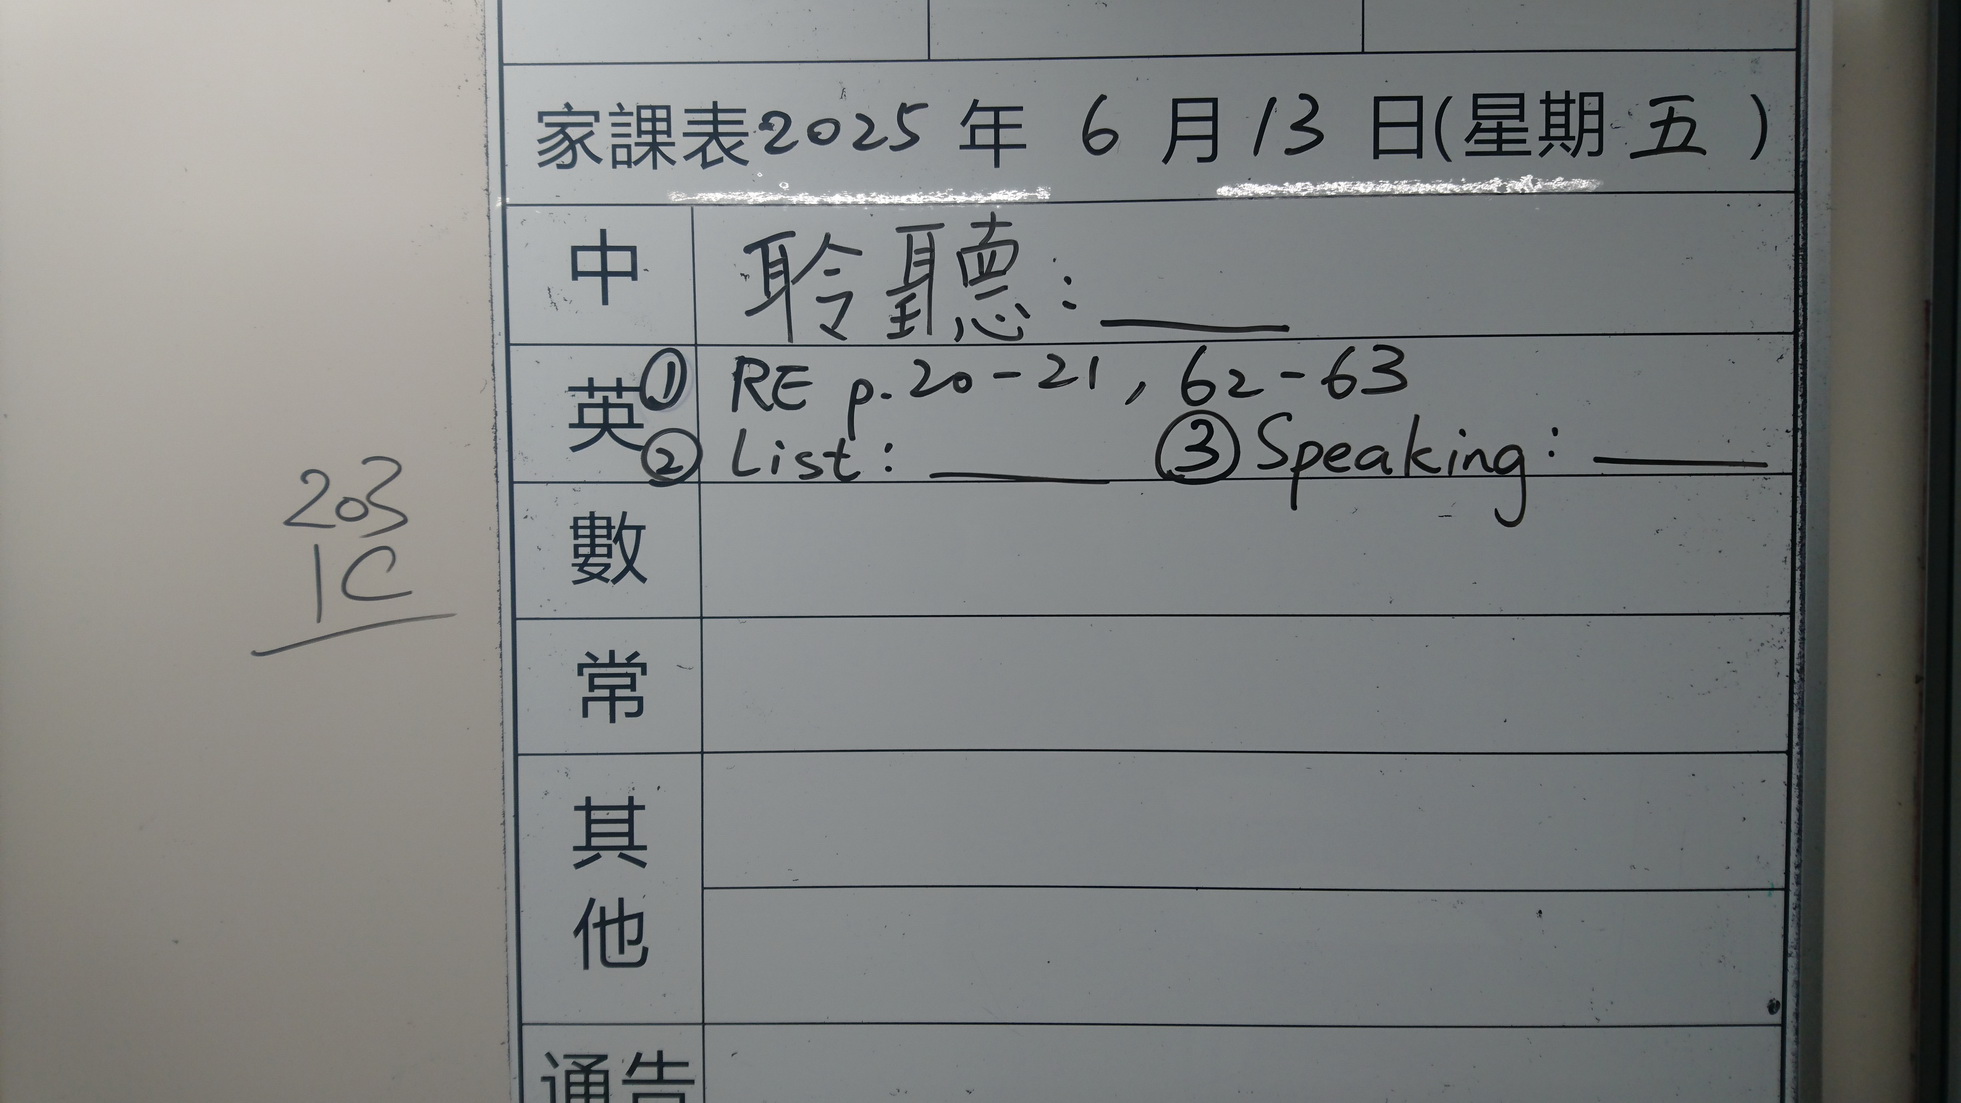 家課表2025 年 6 月 13 日(星期 五 )
中 聆聽：____
英 ① RE p.20-21, 62-63
② List: ____ ③ Speaking: ____
數
常
其他
通告
203
1C